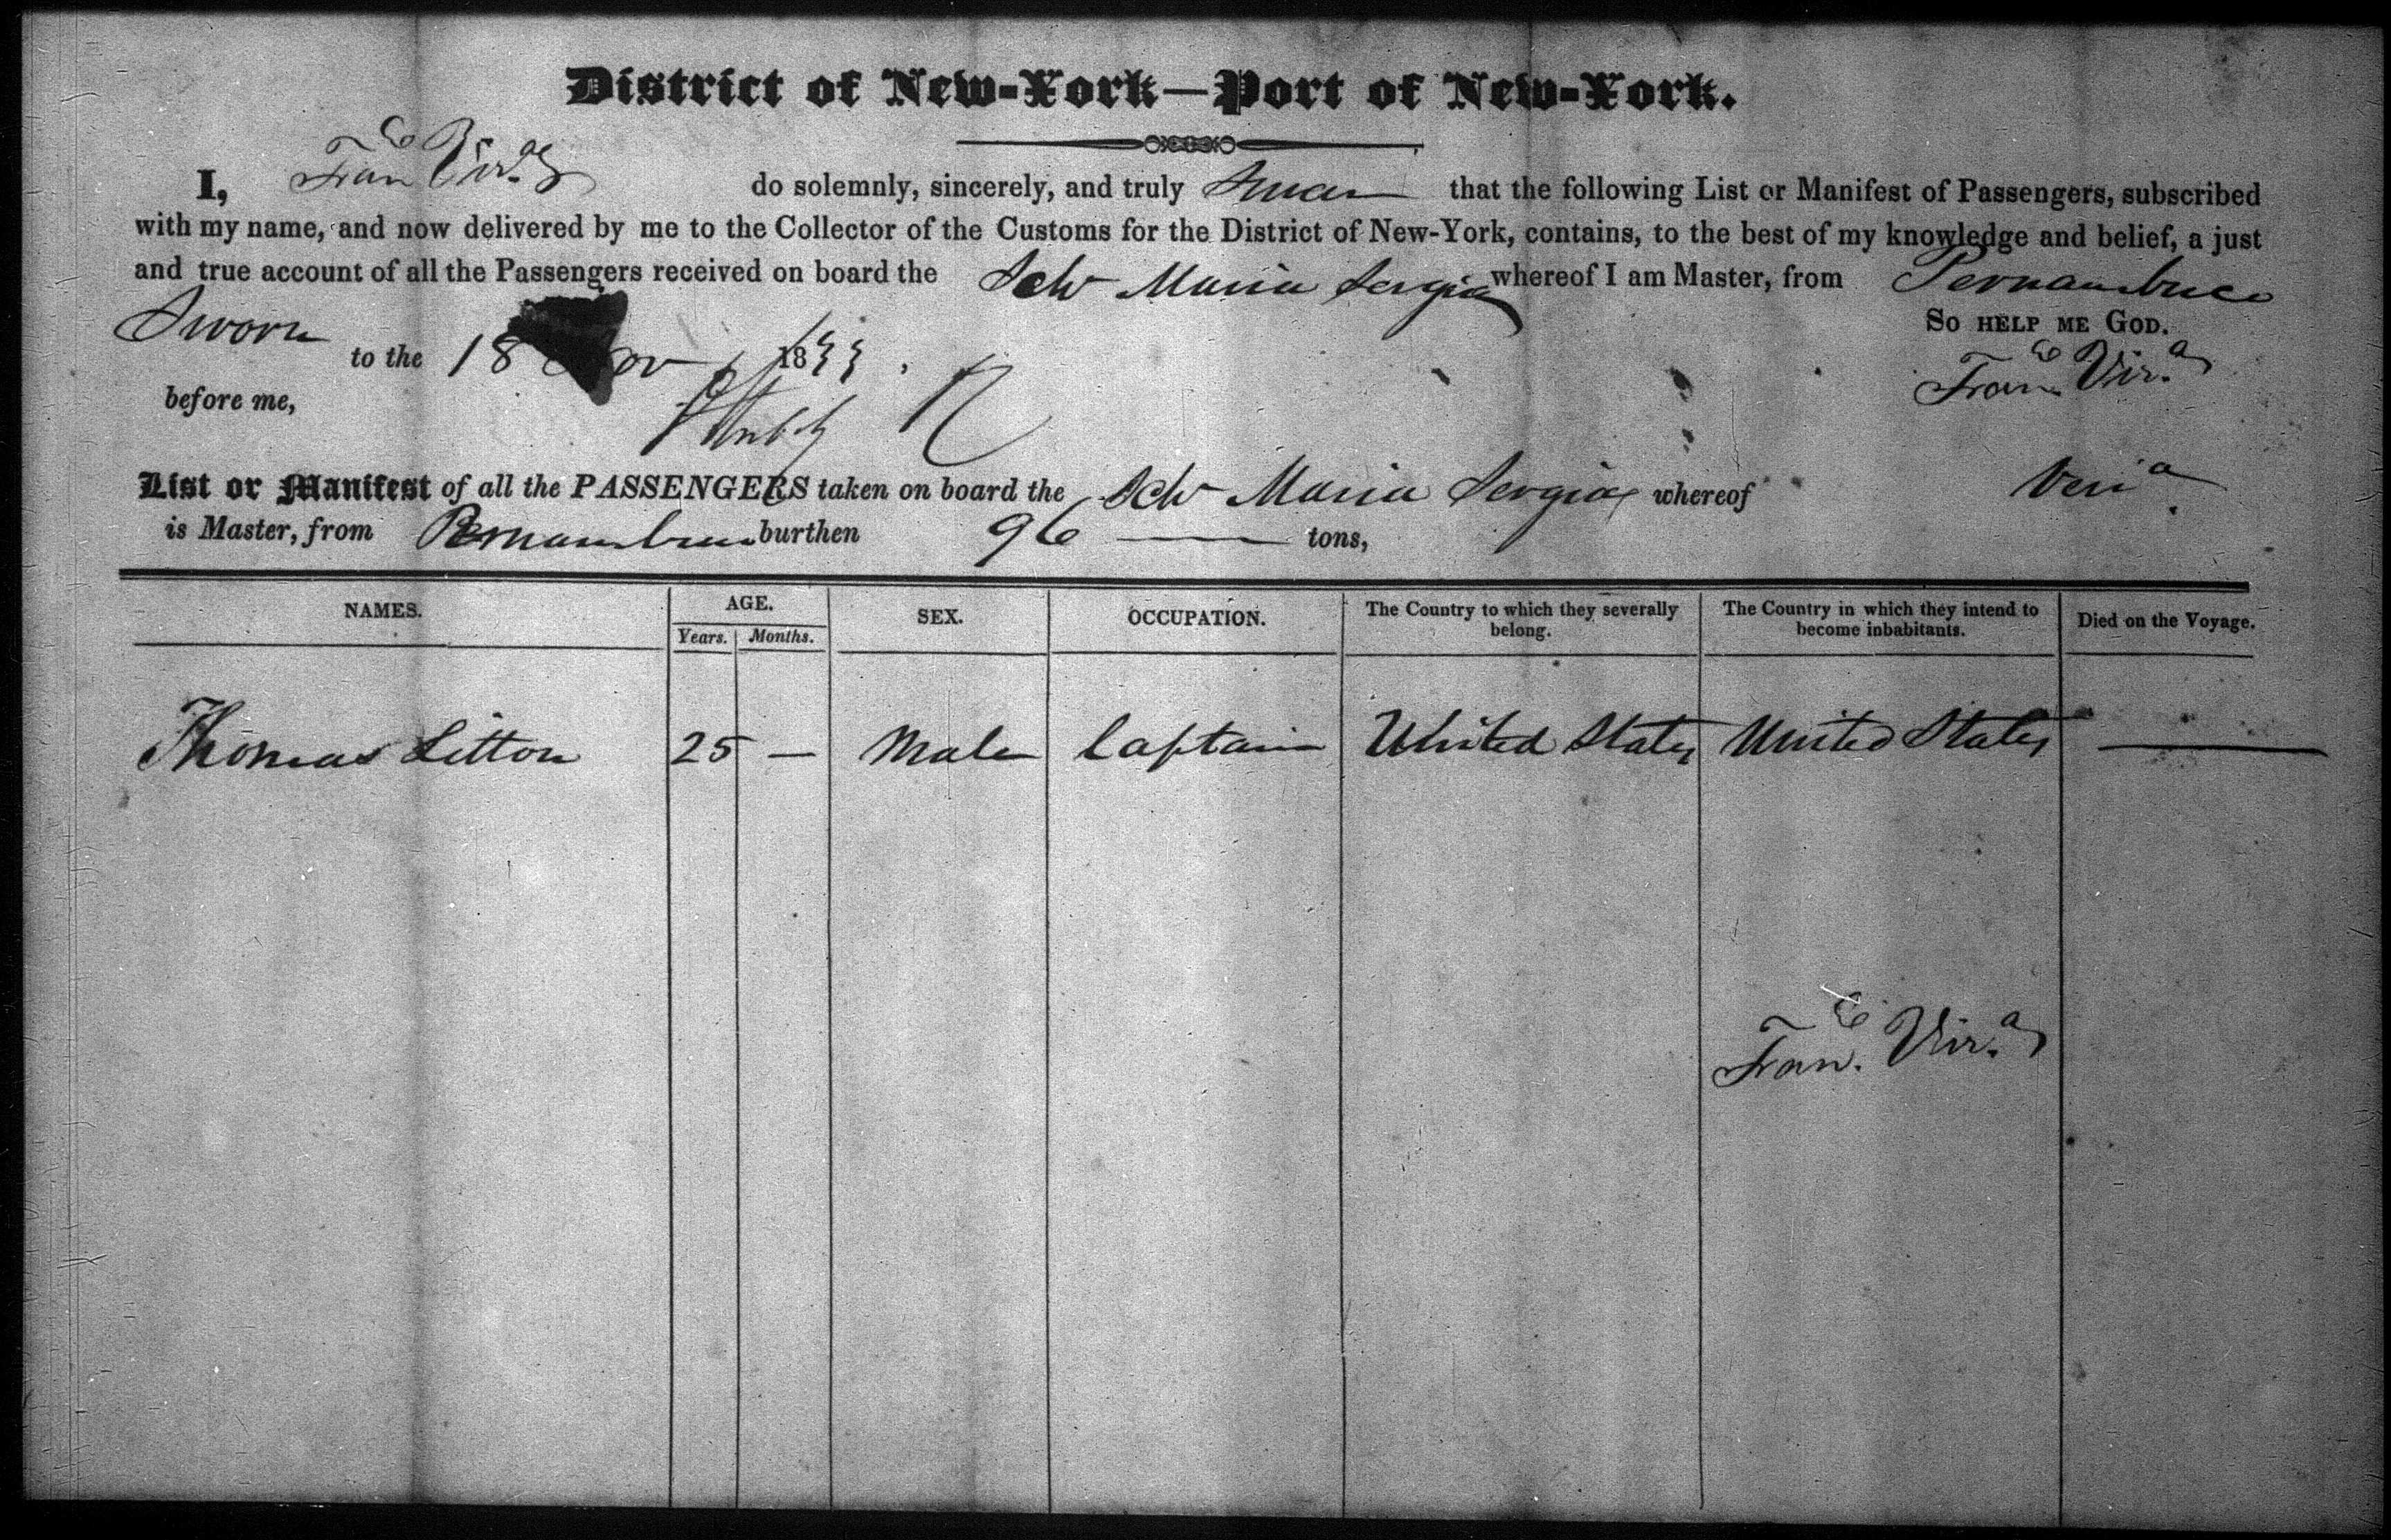 District of New-York—Port of New-York.
I, Fran^co Vir^a do solemnly, sincerely, and truly swear that the following List or Manifest of Passengers, subscribed
with my name, and now delivered by me to the Collector of the Customs for the District of New-York, contains, to the best of my knowledge and belief, a just
and true account of all the Passengers received on board the Schr Maria Sergia whereof I am Master, from Pernambuco
So help me God.
Sworn to the 18 Nov 1833.
Fran^co Vir.^a
before me,
List or Manifest of all the PASSENGERS taken on board the Schr Maria Sergia whereof Veri^a
is Master, from Pernambuco burthen 96 — tons,
NAMES. AGE. SEX. OCCUPATION. The Country to which they severally belong. The Country in which they intend to become inhabitants. Died on the Voyage.
Years. Months.
Thomas Litton 25 — Male Captain United States United States —
Fran.^co Vir.^a